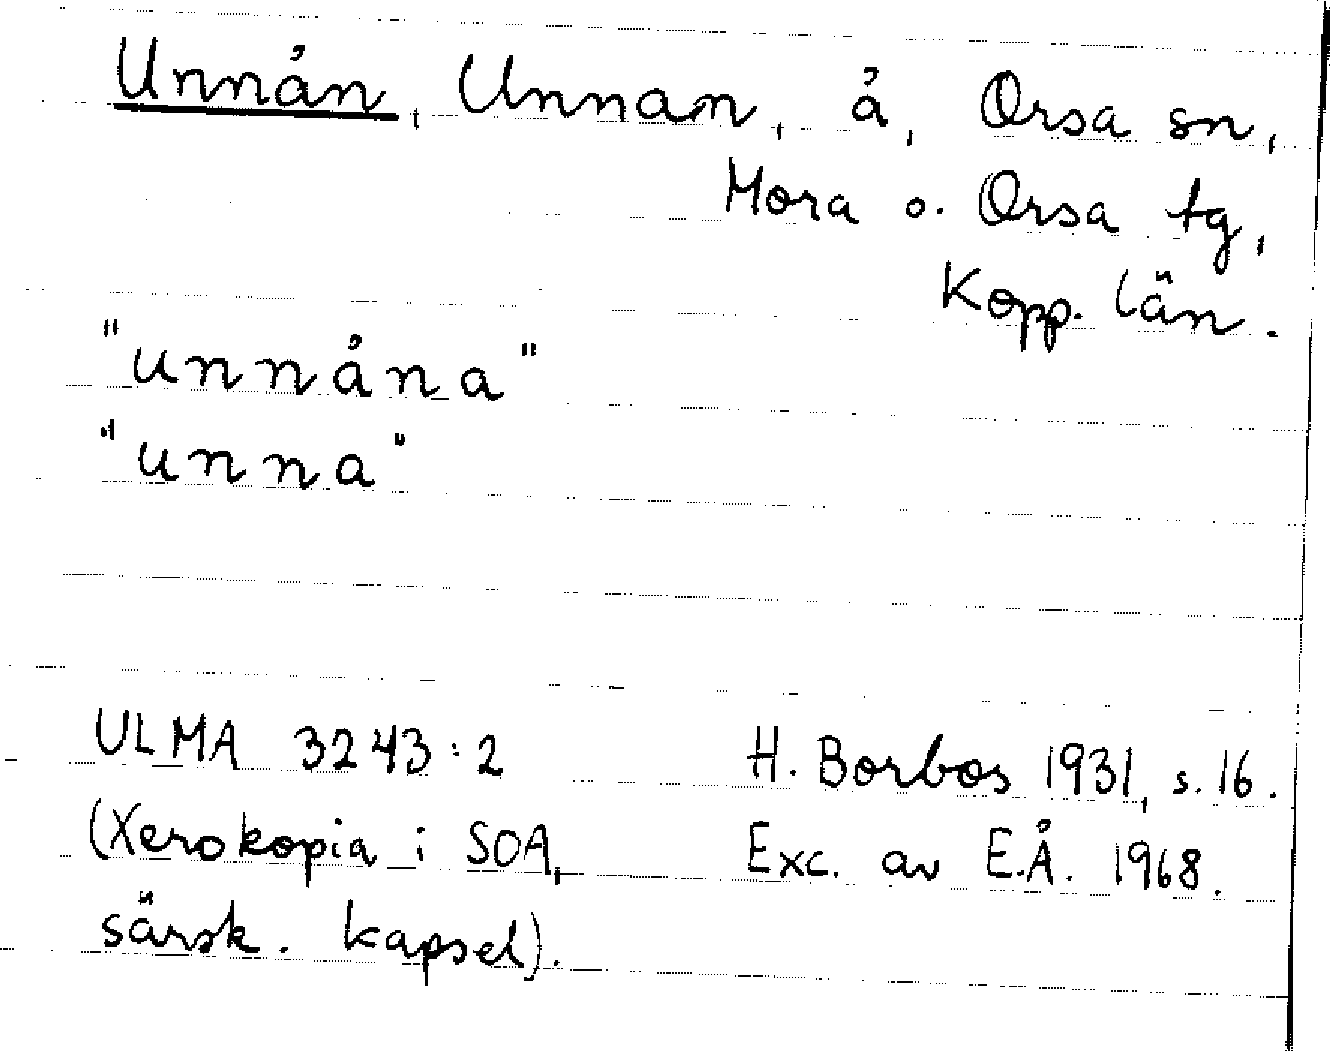 Unnån, Unnan, å, Orsa sn,
Mora o. Orsa tg,
Kopp. län.
"unnåna"
"unna"
ULMA 3243:2 H. Borbos 1931, s. 16.
(Xerokopia i SOA, Exc. av E.Å. 1968.
särsk. kapsel).